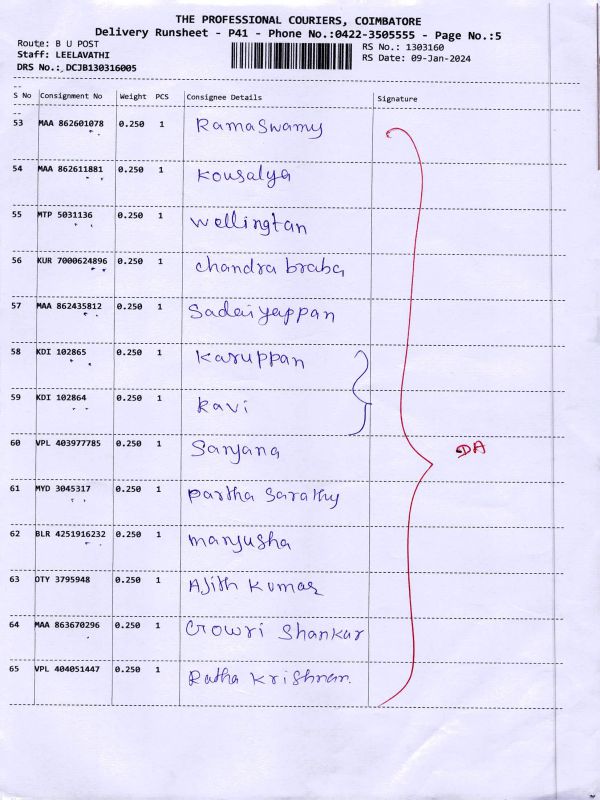 THE PROFESSIONAL COURIERS, COIMBATORE
Delivery Runsheet - P41 - Phone No.:0422-3505555 - Page No.:5
Route: B U POST
RS No.: 1303160
Staff: LEELAVATHI
RS Date: 09-Jan-2024
DRS No.: DCJB130316005
S No Consignment No Weight PCS Consignee Details Signature
53 MAA 862601078 0.250 1 Ramaswamy
54 MAA 862611881 0.250 1 Kousalya
55 MTP 5031136 0.250 1 Wellingtan
56 KUR 7000624896 0.250 1 chandra braba
57 MAA 862435812 0.250 1 Sadaiyappan
58 KDI 102865 0.250 1 Karuppan
59 KDI 102864 0.250 1 Kavi
60 VPL 403977785 0.250 1 Sanjana
DA
61 MYD 3045317 0.250 1 Partha Sarathy
62 BLR 4251916232 0.250 1 manjusha
63 OTY 3795948 0.250 1 Ajith Kumar
64 MAA 863670296 0.250 1 Gowri Shankar
65 VPL 404051447 0.250 1 Ratha Krishnan